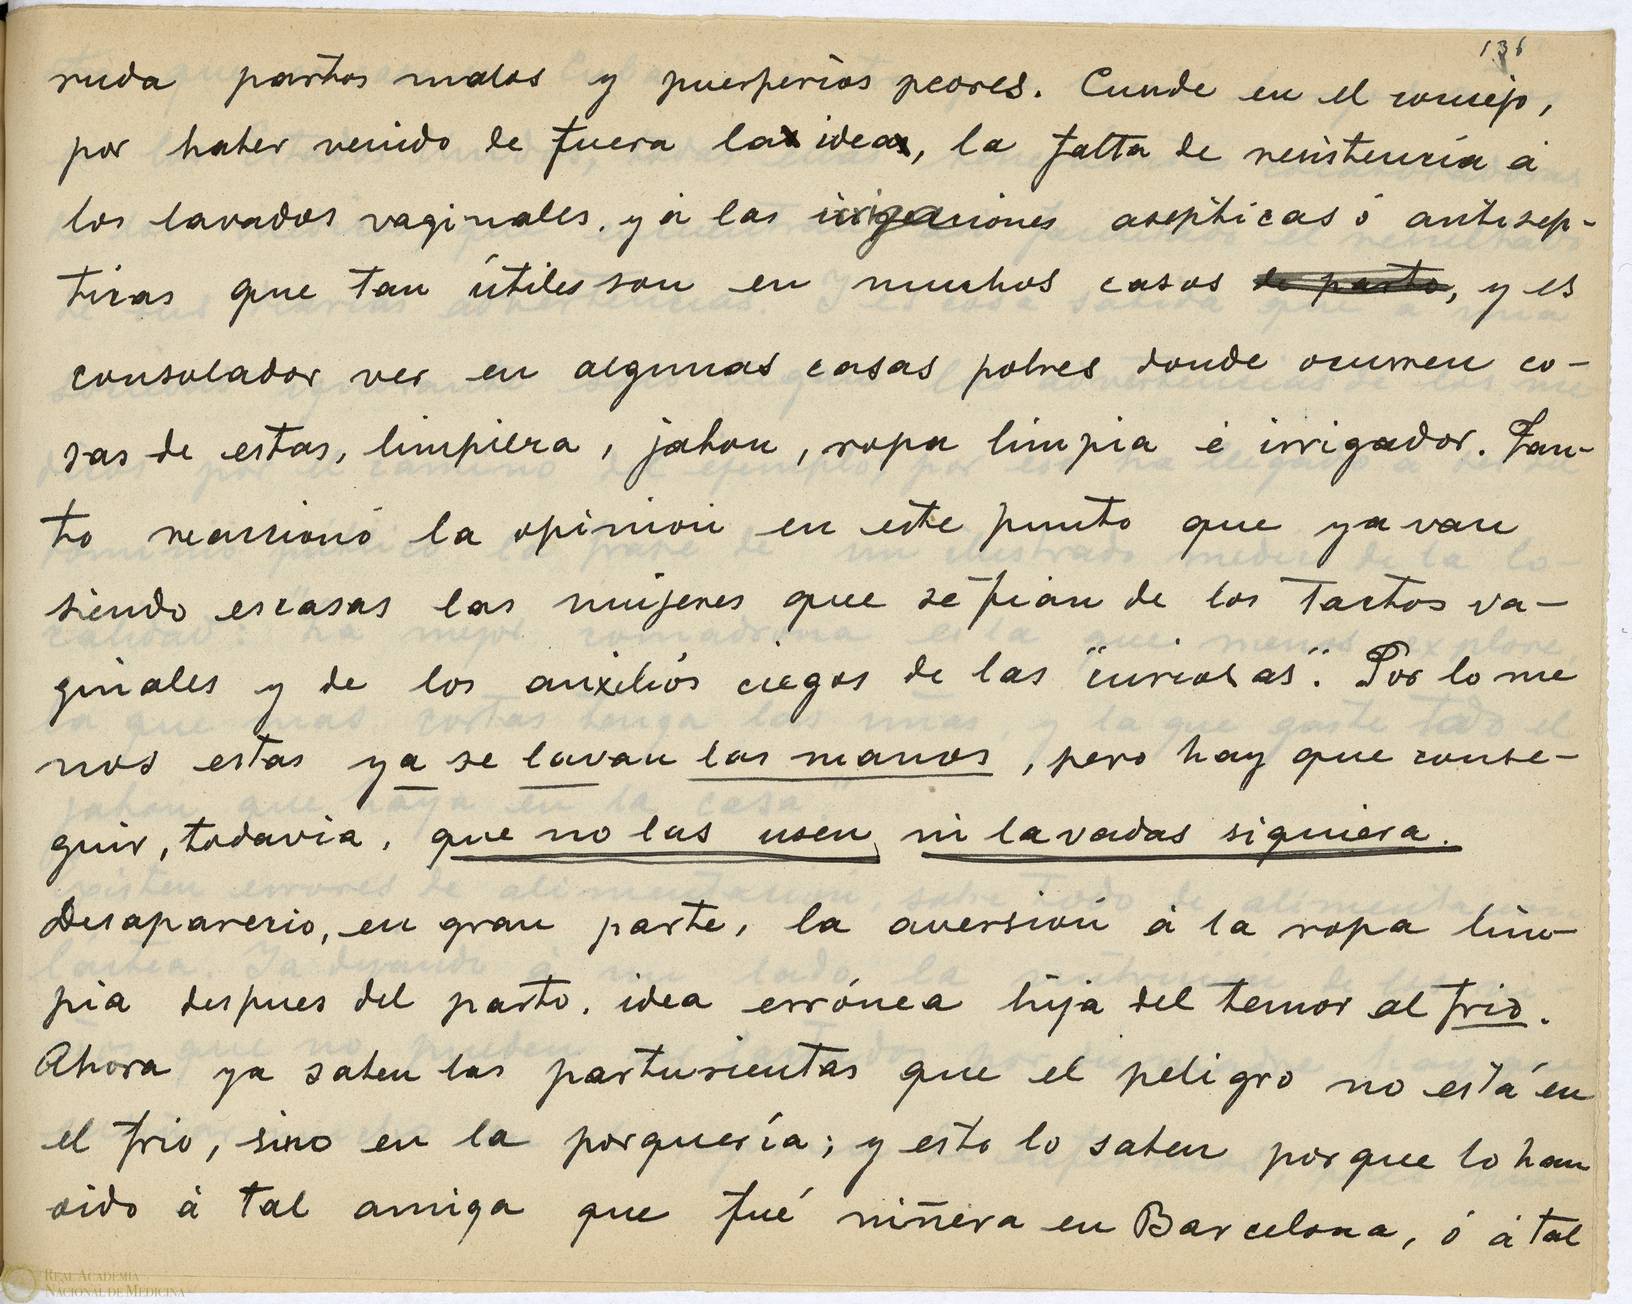 136
ruda partos malos y puerperios peores. Cunde en el concejo,
por haber venido de fuera la idea, la falta de resistencia á
los lavados vaginales, y á las irrigaciones asépticas ó antisép-
ticas que tan útiles son en muchos casos de parto, y es
consolador ver en algunas casas pobres donde ocurren co-
sas de estas, limpieza, jabon, ropa limpia é irrigador. Tan-
to reaccionó la opinion en este punto que ya van
siendo escasas las mujeres que se fian de los tactos va-
ginales y de los auxilios ciegos de las "curiosas". Por lo me
nos estas ya se lavan las manos, pero hay que conse-
guir, todavia, que no las usen ni lavadas siquiera.
Desaparecio, en gran parte, la aversion á la ropa lim-
pia despues del parto, idea errónea hija del temor al frio.
Ahora ya saben las parturientas que el peligro no está en
el frio, sino en la porquería; y esto lo saben porque lo han
oido á tal amiga que fué niñera en Barcelona, ó á tal
REAL ACADEMIA
NACIONAL DE MEDICINA